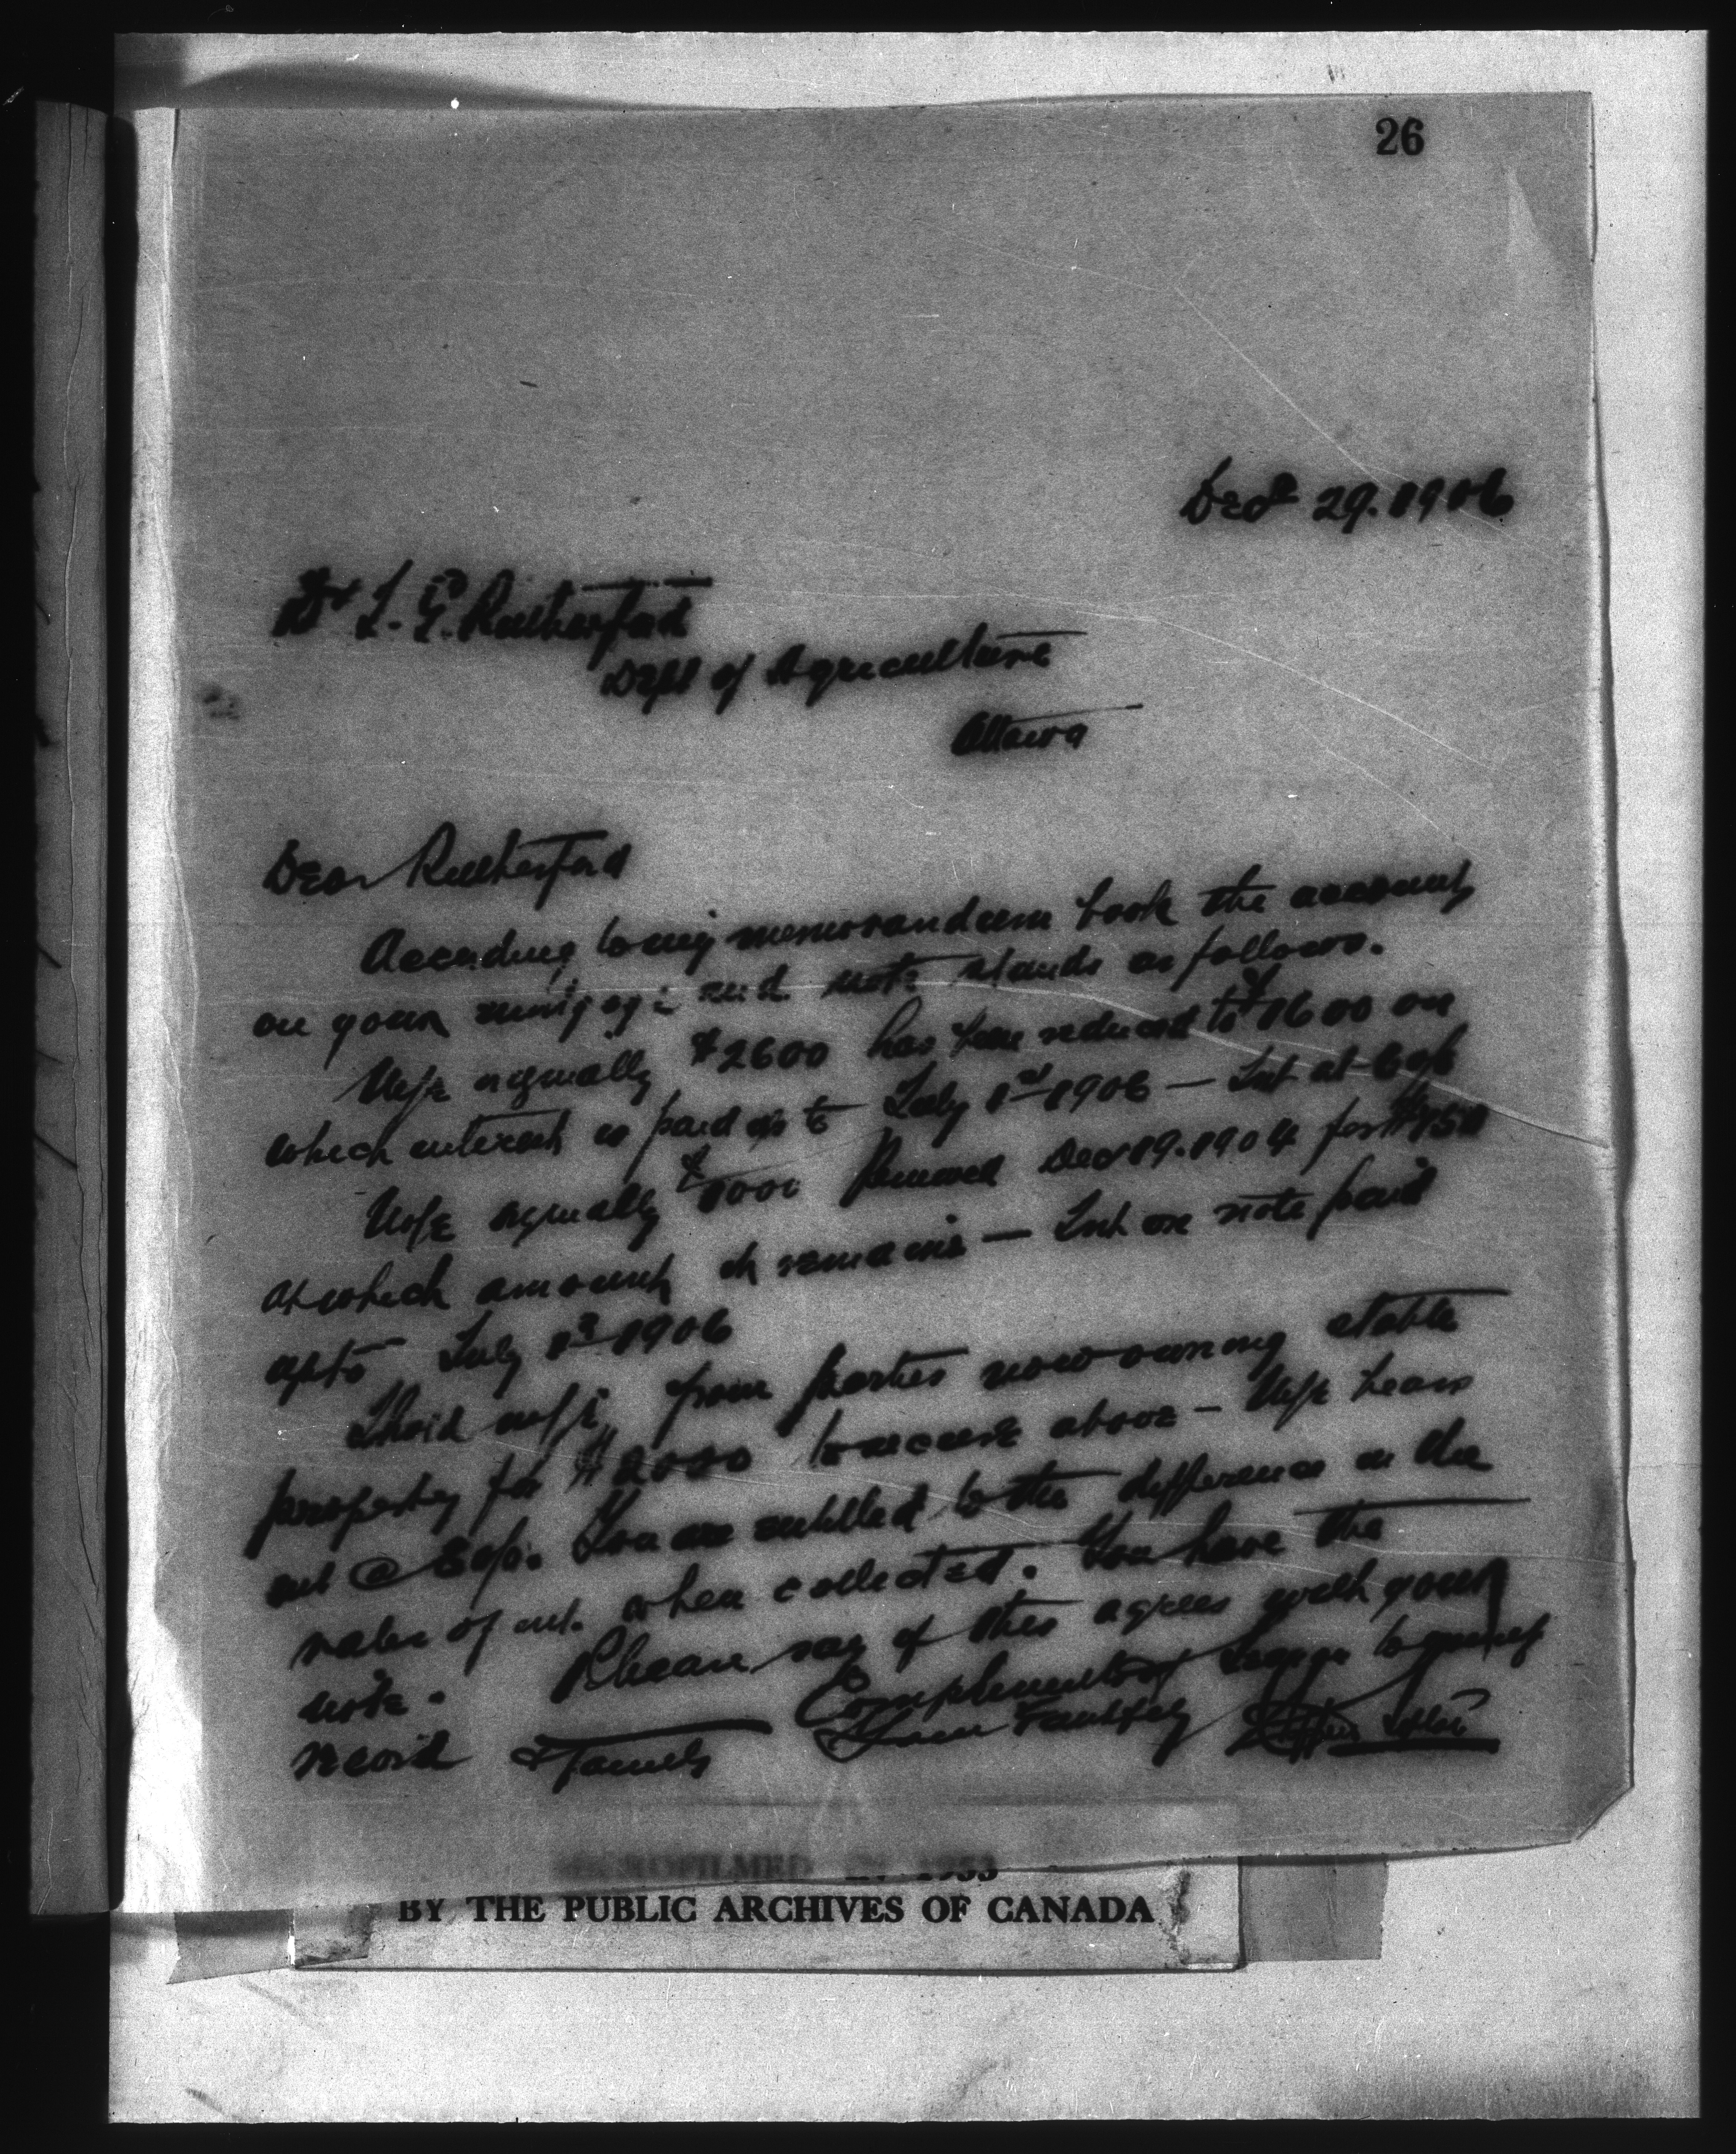 26
Dec 29. 1906
Dr J. G. Rutherford
Dept of Agriculture
Ottawa
Dear Rutherford
According to my memorandum book the account
on your mortgage and note stands as follows.
Mtge orgnially $2600 has been reduced to $1600 on
which interest is paid up to July 1st 1906 — Int at 6%
Note orgnially $1000 Renewed Dec 19. 1904 for $750
at which amount it remains — Int on note paid
up to July 1st 1906
I hold mtge from parties now owning stable
property for $2000 to secure above — Mtge bears
int @ 8%. You are entitled to the difference in the
rates of int. when collected. You have the
note. Please say if this agrees with your
record Compliments of Season to yourself
& family Yours Faithfully
MICROFILMED IN 1953
BY THE PUBLIC ARCHIVES OF CANADA